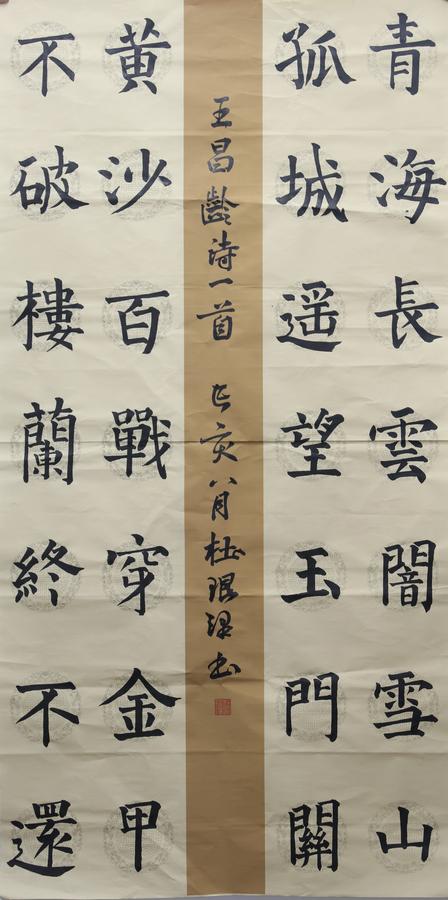 青海長雲闇雪山
孤城遥望玉門關
王昌齡詩一首 己亥八月杜
書
黃沙百戰穿金甲
不破樓蘭終不還